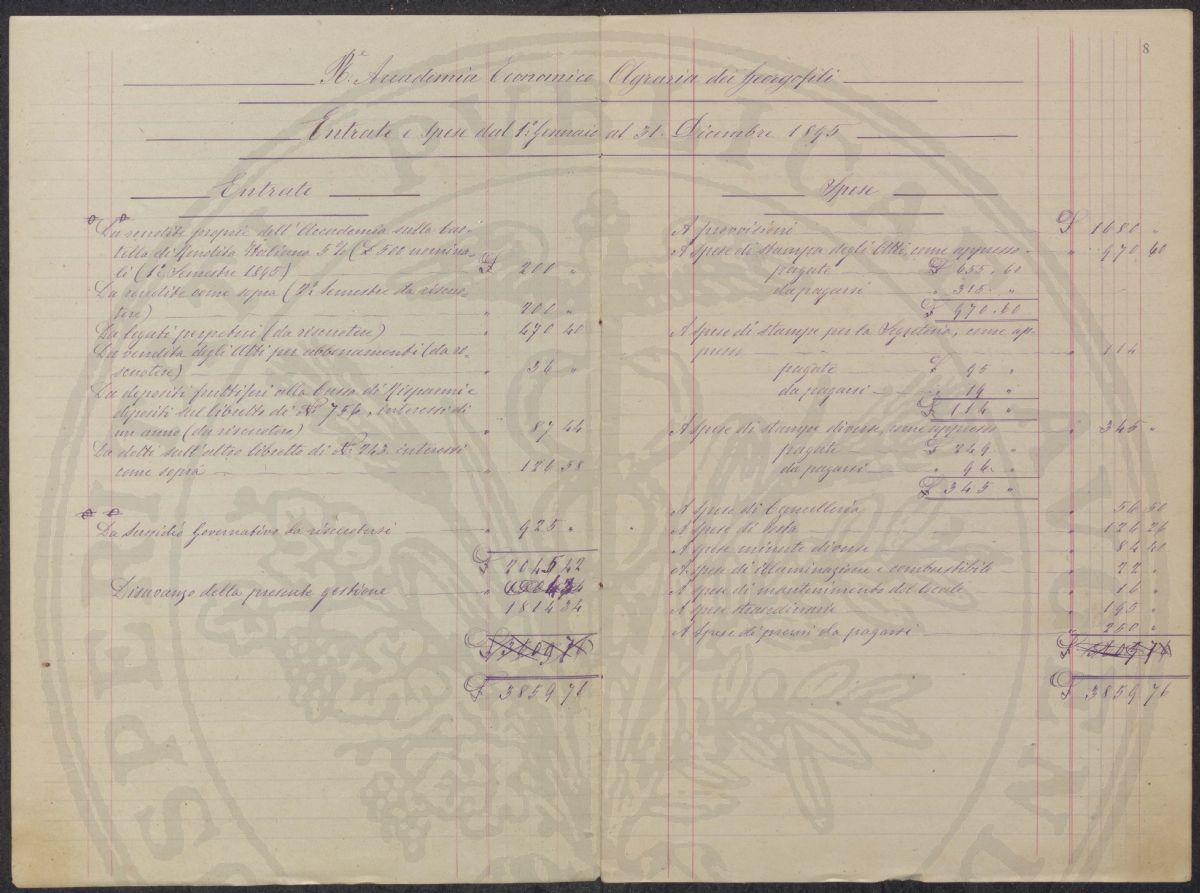 8
R.e Accademia Economico Agraria dei Georgofili
Entrate e Spese dal 1° Gennaio al 31. Dicembre 1895
Entrate
Da rendite proprie dell'Accademia sulla Car-
tella di Rendita Italiana 5% (£ 500 nomina-
li (1° Semestre 1895) £ 200 "
Da rendite come sopra (2° Semestre da riscuo-
tere) " 200 "
Da legati perpetui (da riscuotere) " 470 40
Da vendita degli Atti per abbonamenti (da ri-
scuotere) " 36 "
Da depositi fruttiferi alla Cassa di Risparmi e
depositi sul libretto di N° 756, interessi di
un anno (da riscuotere) " 87 44
Da detti sull'altro libretto di N° 243. interessi
come sopra " 126 58
Da Sussidio Governativo da riscuotersi " 925 "
£ 2045 42
Disavanzo della presente gestione
1814 34
£ 3409 76
£ 3859 76
Spese
A provvisioni £ 1680 "
A spese di stampa degli Atti, come appresso " 970 60
pagate £ 655. 60
da pagarsi " 315. "
£ 970. 60
A spese di stampe per la Segreteria, come ap-
presso " 114
pagate £ 95 "
da pagarsi " 19 "
£ 114 "
A spese di stampe diverse, come appresso " 345 "
pagate £ 249 "
da pagarsi " 96 "
£ 345 "
A spese di Cancelleria " 56 50
A spese di Posta " 126 26
A spese minute diverse " 84 40
A spese di illuminazione e combustibile " 22 "
A spese di mantenimento del locale " 16 "
A spese straordinarie " 195 "
A spese di premi da pagarsi " 250 "
£ 3409 76
£ 3859 76